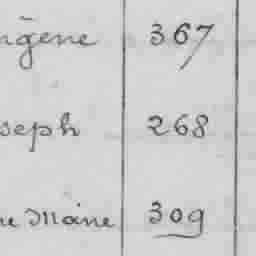 ngène 367
seph 268
ne Marie 309